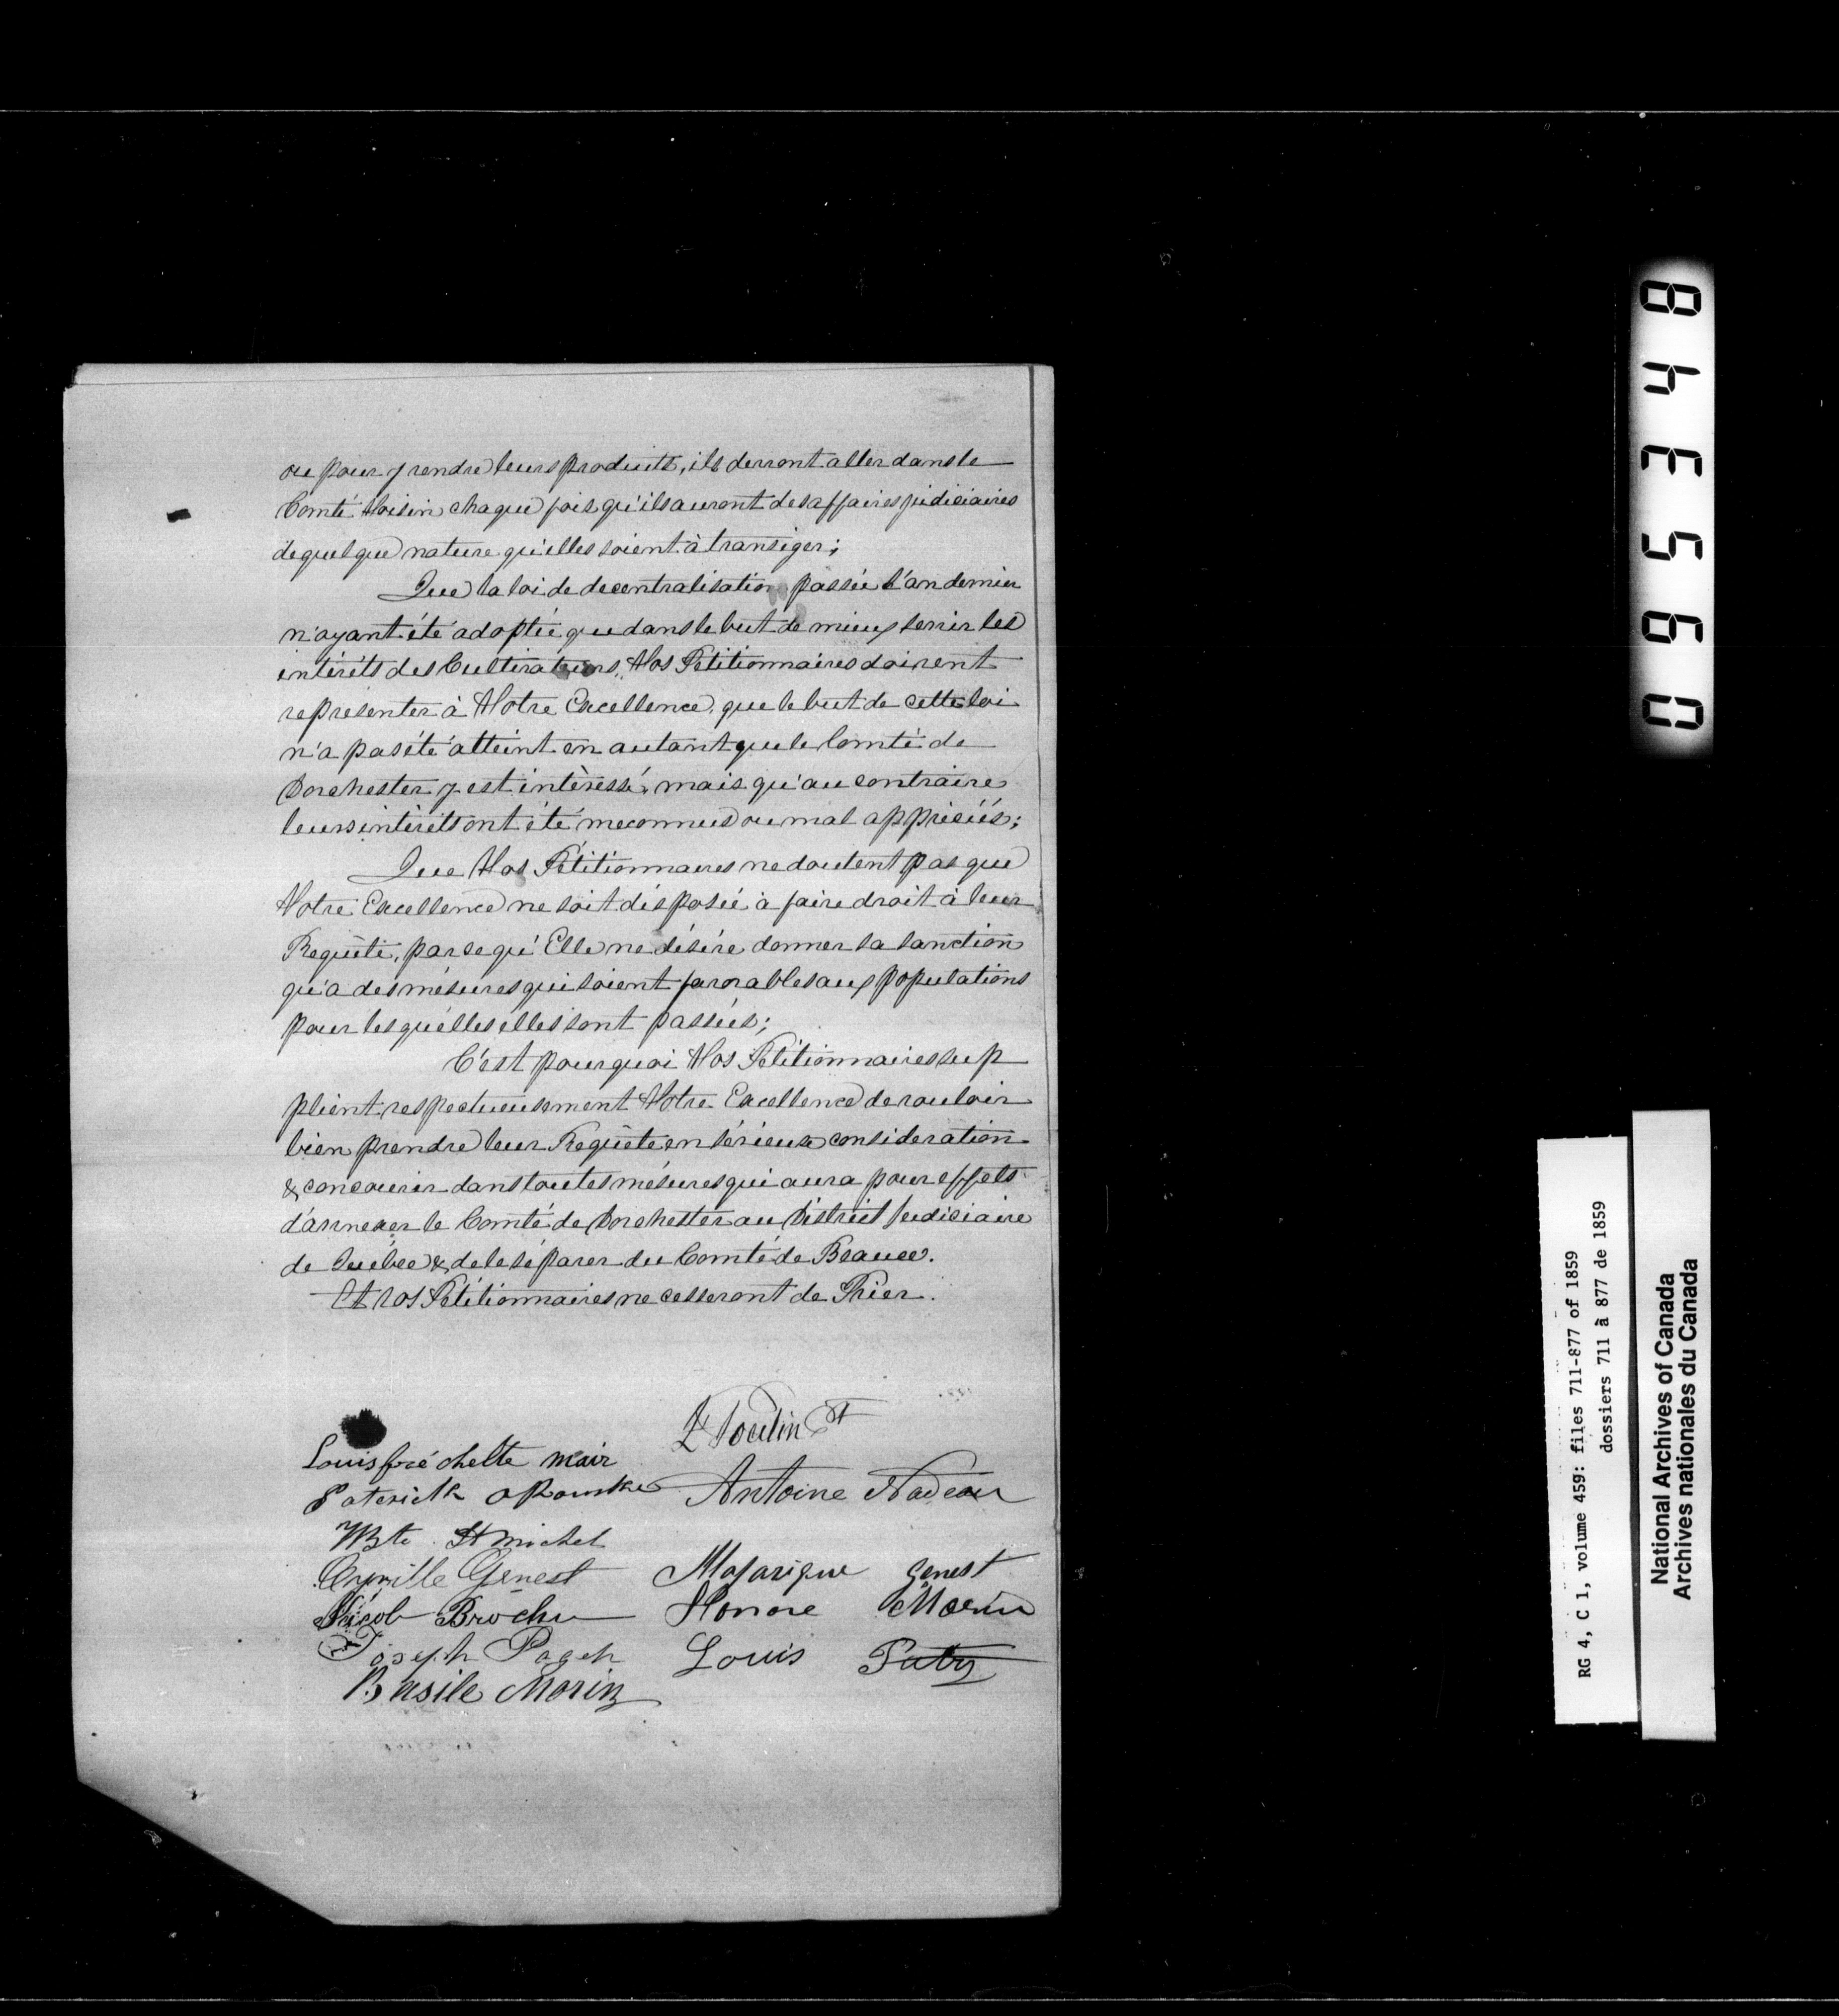 ou pour y vendre leurs produits, ils devront aller dans le
Comté Voisin chaque fois qu'ils auront des affaires judiciaires
de quelque nature qu'elles soient à transiger;
Que la loi de decentralisation passée l'an dernier
n'ayant été adoptée que dans le but de mieux servir les
intérêts des Cultivateurs, Vos Petitionnaires doivent
représenter à Votre Excellence, que le but de cette loi
n'a pas été atteint en autant que le Comté de
Dorchester y est intèressé, mais qu'au contraire
leurs intérêts ont été meconnus ou mal appriciés;
Que Vos Pétitionnaires ne doutent pas que
Votre Excellence ne soit disposée à faire droit à leur
Requête, parse qu'Elle ne désire donner sa sanction
qu'a des mésures qui soient favorables aux populations
pour lesquélles elles sont passées;
C'est pourquoi Vos Petitionnaires sup
plient respectueusement Votre Excellence de vouloir
bien prendre leur Requête en sérieuse consideration
& concourir dans toutes mésures qui aura pour effets
d'annexer le Comté de Dorchester au District Judiciaire
de Québec & de le séparer du Comté de Beauce.
Et vos Pétitionnaires ne cesseront de Prier.
Poulin
Louis fréchette mair
Paterick ORourke Antoine Nadeau
JBte St michel
Cyrille Genest Majorique Genest
Jacob Brochu Honore Morin
Joseph Pageh Louis
Basile Morin
0 6 5 3 4 8
RG 4, C 1, volume 459: files 711-877 of 1859
dossiers 711 à 877 de 1859
National Archives of Canada
Archives nationales du Canada